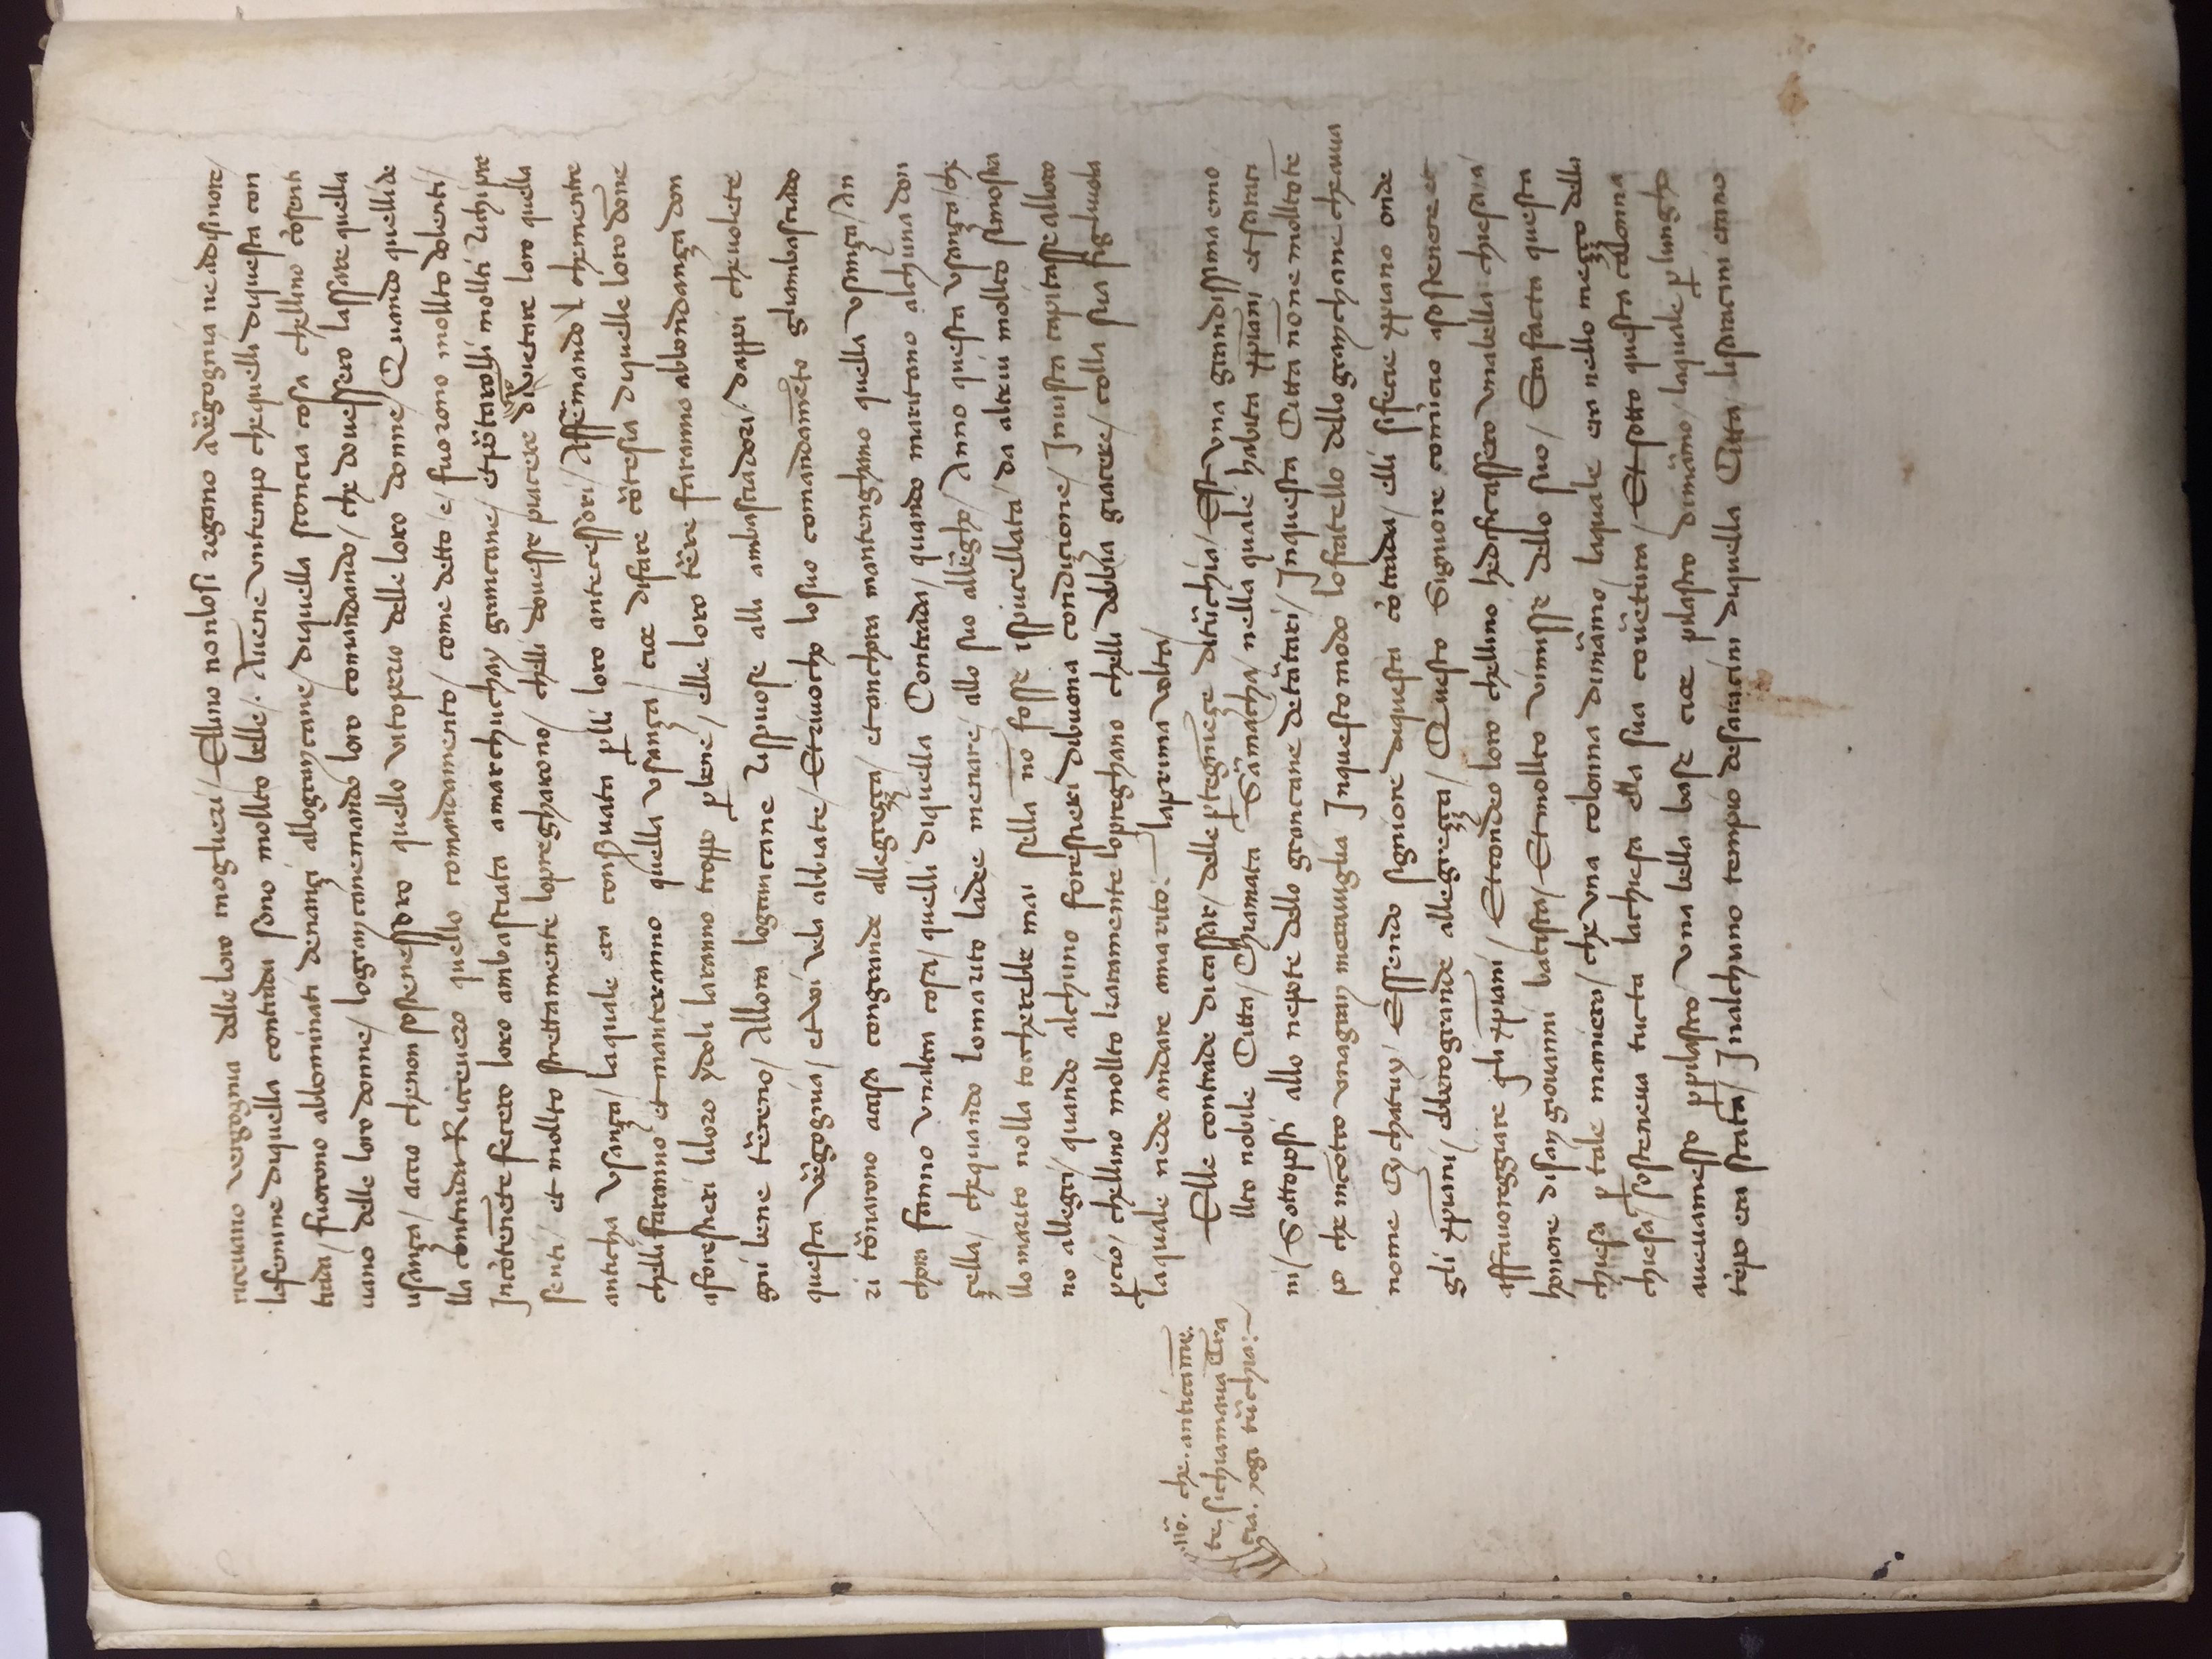 ricevano vergognia delle loro moglieri / Ellino nonlosi regano avẽgognia ne adisinore /
lefemine diquella contrada sono mollto belle /. Avẽne untempo chequelli diquesta con
trada / fuorono abbominati denançi allograncane / diquella sconcia cosa chellino cõsenti
vano delle loro donne / lograncanemando loro comandando / che dovessero lassare quella
usança / accio chenon sostenessoro quello vitoperio delle loro donne / Quando quelli de
lla contrada Riccevero quello comandamento / come detto /e/ fuorono mollto dolenti /
Incõtenẽte fecero loro ambasciata amarchuchay grancane / et põtarolli mollti Richi pre
senti / et mollto strettamente lopregharono / chelli dovesse piacere di nõ vietare loro quella
anticha usança / laquale era conservata p̱lli loro antecessori / Affẽmando l chementre
chelli faranno et manteranno quella usança / cioe difare cõtesia diquelle loro dõne
aforestieri liloro ydoli laranno troppo p̱ bene / elle loro tẽre faranno abbondança don
gni bene tẽreno / Allora lograncane Rispuose alli ambasciadori / dappoi chevolete
questa vẽgognia / et voi vela abbiate / Et rivocho losuo comandamẽto gliambasciado
ri tõnarono accasa congrande allegreçça / et anchora mantenghano quella usança / An
chora fanno unaltra cosa / quelli diquella Contrada / quando maritano alchuna don
çella / chequando lomarito ladee menare / allo suo allẽgho / Anno questa usança / che
llo marito nolla toccherebbe mai sella nõ fosse ispucellata da altrui mollto simostra
no allegri / quando alchuno forestieri dibuona condiçione / Invista capitasse alloro
p̱cio / chellino mollto karamente lopreghano chelli debbia giacere / colla sua figliuola
laquale nede andare amarito: — laprima volta /
nõ. che. anticamẽ.
te. sichiamava Tra
cia. yogi tũchia: —
Elle contrade dicassar / delle p̱tegniẽçe ditũchia / Est una grandissima emo
llto nobile Citta / Chiamata Sãmacha / nella quale habita xp̃iani et saraci
ni / Sottoposti allo nepote dello grancane detãtari / Inquesta Citta nõne mollto tẽ
po che incõtro unagran meraviglia Inquesto modo lofratello dello granchane cheavia
nome Cychatuy / Essendo signiore diquesta cõtrada / elli sifecie xp̃iano onde
gli xp̃iani / ebberogrande allegreçça / Questo Signiore comĩcio asostenere et
affavoreggiare gli xp̃iani / Et condeo loro chellino hedificassero unabella chiesa / a
honore disan giovanni batista / Et mollto vimisse dello suo / Era facta questa
chiesa p̱ tale maniera / che una colonna dimãmo / laquale era nello meçço della
chiesa / sosteneva tucta lachiesa ella sua covẽtura / Et sotto questa colonna
avevamesso p̱ pilastro una bella base cioe pilastro dimãmo / laquale p̱ lungho
tẽpo era stata / Inalchuno tempio desaracini diquella Citta lisaracini erano